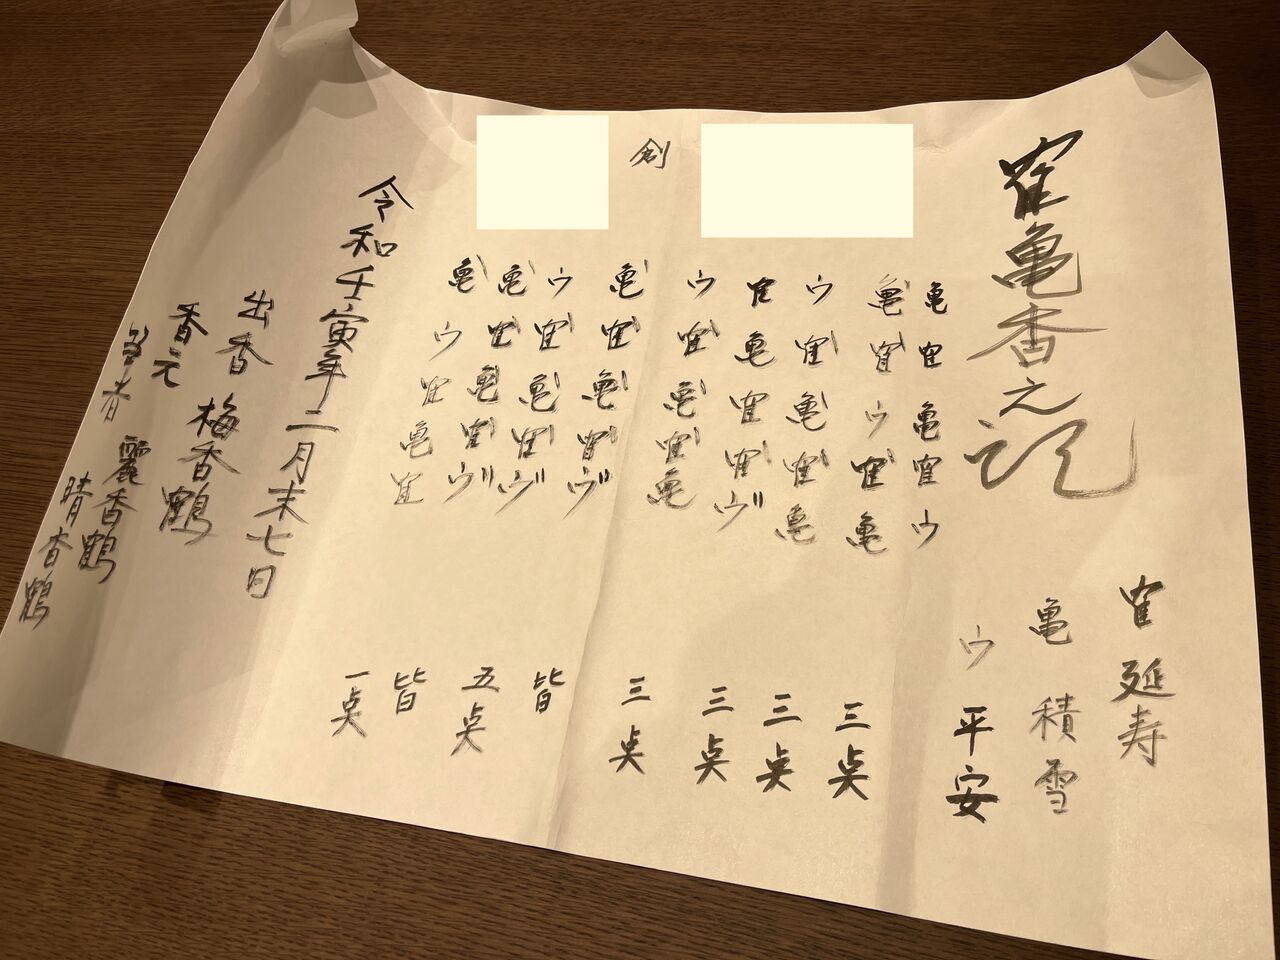 寉亀香之記
寉 延寿
亀 積雪
ウ 平安
亀 寉 亀 寉 ウ
亀 寉 ウ 寉 亀 三点
ウ 寉 亀 寉 亀 三点
寉 亀 寉 寉 ヴ 三点
ウ 寉 亀 寉 亀 三点
創 亀 寉 亀 寉 ヴ 皆
ウ 寉 亀 寉 ヴ 五点
亀 寉 亀 寉 ヴ 皆
亀 ウ 寉 亀 寉 一点
令和壬寅年二月末七日
出香 梅香鶴
香元 麗香鶴
晴香鶴